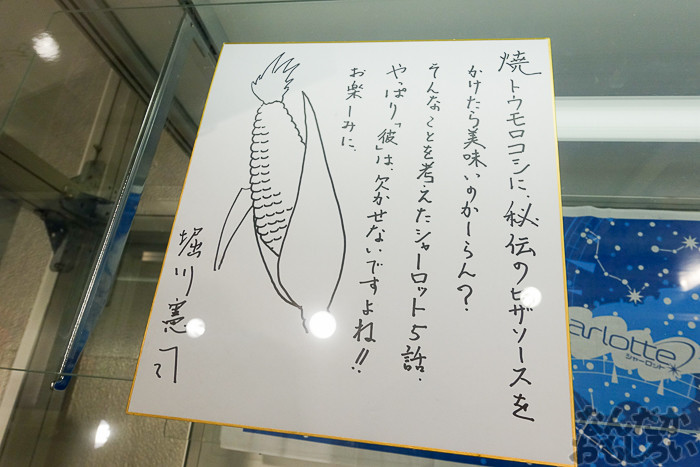 焼トウモロコシに、秘伝のピザソースを
かけたら美味いのかしらん？
そんなことを考えたシャーロット5話．
やっぱり「彼」は、欠かせないですよね!!
お楽しみに．
堀川憲司
arlotte
シャーロット
なんだか
おもしろい